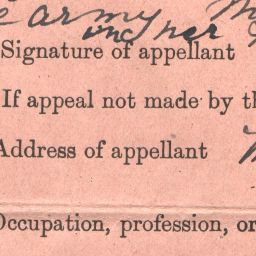 army
her
Signature of appellant
If appeal not made by th
Address of appellant
Occupation, profession, or